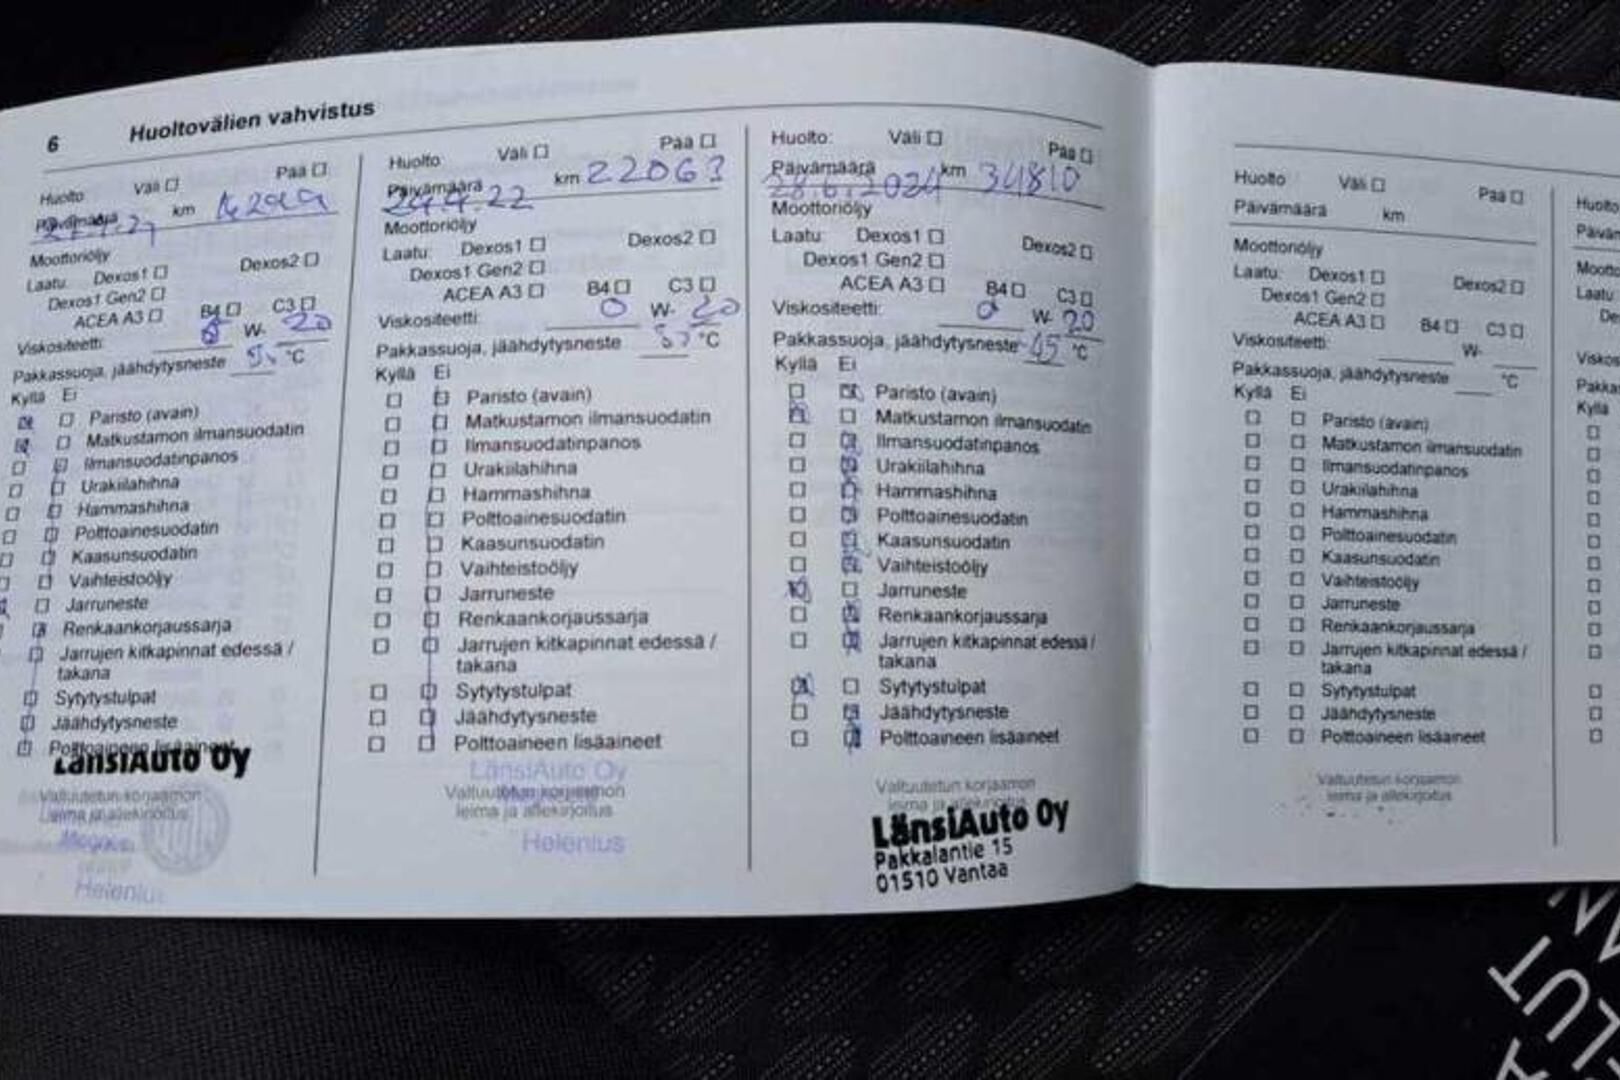 6 Huoltovälien vahvistus
Huolto Väli Pää
Päivämäärä km
Moottoriöljy
Laatu: Dexos1 Dexos2
Dexos1 Gen2
ACEA A3 B4 C3
Viskositeetti: 0 W- 20
Pakkassuoja, jäähdytysneste °C
Kyllä Ei
Paristo (avain)
Matkustamon ilmansuodatin
Ilmansuodatinpanos
Urakiilahihna
Hammashihna
Polttoainesuodatin
Kaasunsuodatin
Vaihteistoöljy
Jarruneste
Renkaankorjaussarja
Jarrujen kitkapinnat edessä /
takana
Sytytystulpat
Jäähdytysneste
Polttoaineen lisäaineet
LänsiAuto Oy
Valtuutetun korjaamon
leima ja allekirjoitus
Helenius
Huolto Väli Pää
Päivämäärä km 22063
Moottoriöljy
Laatu: Dexos1 Dexos2
Dexos1 Gen2
ACEA A3 B4 C3
Viskositeetti: 0 W- 20
Pakkassuoja, jäähdytysneste °C
Kyllä Ei
Paristo (avain)
Matkustamon ilmansuodatin
Ilmansuodatinpanos
Urakiilahihna
Hammashihna
Polttoainesuodatin
Kaasunsuodatin
Vaihteistoöljy
Jarruneste
Renkaankorjaussarja
Jarrujen kitkapinnat edessä /
takana
Sytytystulpat
Jäähdytysneste
Polttoaineen lisäaineet
LänsiAuto Oy
Valtuutetun korjaamon
leima ja allekirjoitus
Helenius
Huolto: Väli Pää
Päivämäärä 28.6.2024 km 34810
Moottoriöljy
Laatu: Dexos1 Dexos2
Dexos1 Gen2
ACEA A3 B4 C3
Viskositeetti: 0 W- 20
Pakkassuoja, jäähdytysneste -45 °C
Kyllä Ei
Paristo (avain)
Matkustamon ilmansuodatin
Ilmansuodatinpanos
Urakiilahihna
Hammashihna
Polttoainesuodatin
Kaasunsuodatin
Vaihteistoöljy
Jarruneste
Renkaankorjaussarja
Jarrujen kitkapinnat edessä /
takana
Sytytystulpat
Jäähdytysneste
Polttoaineen lisäaineet
Valtuutetun korjaamon
leima ja allekirjoitus
LänsiAuto Oy
Pakkalantie 15
01510 Vantaa
Huolto Väli Pää
Päivämäärä km
Moottoriöljy
Laatu: Dexos1 Dexos2
Dexos1 Gen2
ACEA A3 B4 C3
Viskositeetti: W-
Pakkassuoja, jäähdytysneste °C
Kyllä Ei
Paristo (avain)
Matkustamon ilmansuodatin
Ilmansuodatinpanos
Urakiilahihna
Hammashihna
Polttoainesuodatin
Kaasunsuodatin
Vaihteistoöljy
Jarruneste
Renkaankorjaussarja
Jarrujen kitkapinnat edessä /
takana
Sytytystulpat
Jäähdytysneste
Polttoaineen lisäaineet
Valtuutetun korjaamon
leima ja allekirjoitus
Huolto
Laatu:
Kyllä